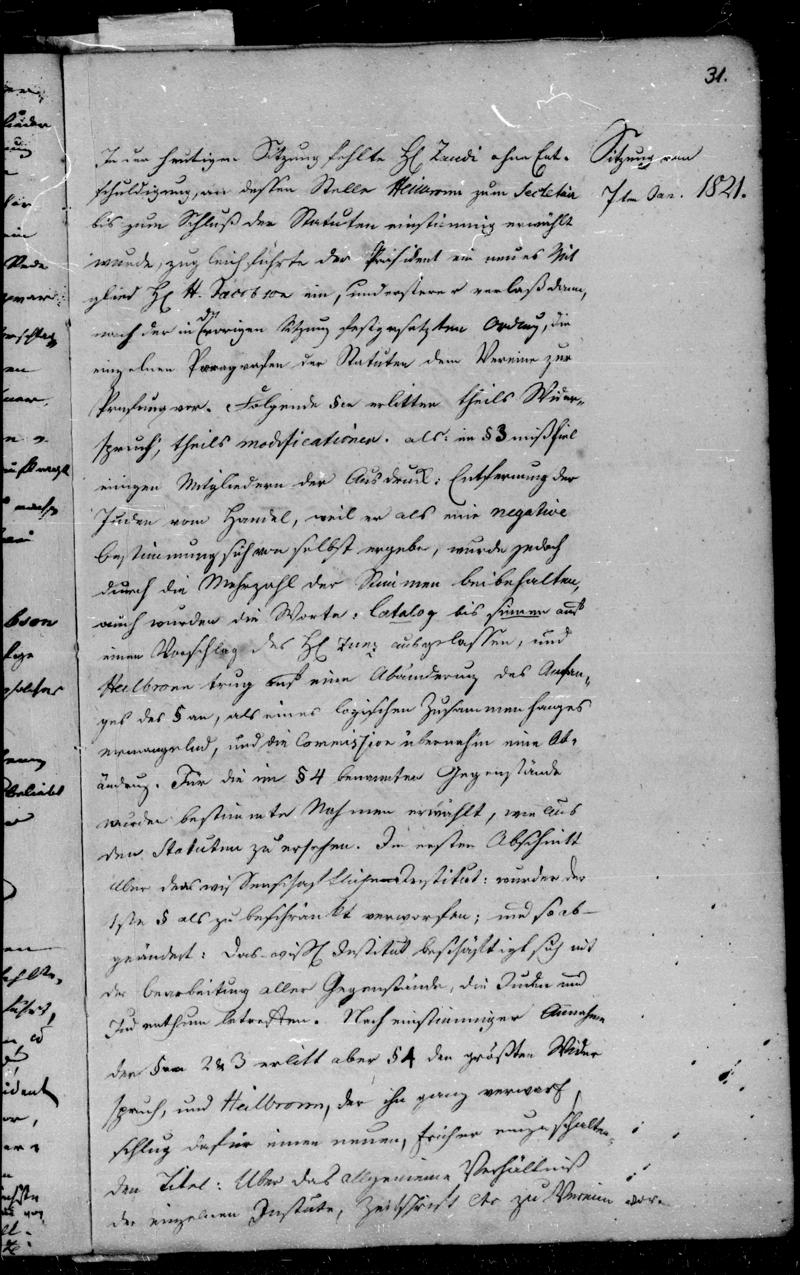 31.
Sitzung vom
7ten Jan. 1821.
In der heutigen Sitzung fehlte H. ohne Ent-
schuldigung, an dessen Stelle Heilbronn zum Secretär
bis zum Schluß der Statuten einstimmig erwählt
wurde, zugleich führte der Präsident ein neues Mit
glied H. H. Jacobson ein, und ersterer verlaß dann,
nach der in der vorigen Sitzung festgesetzten Ordnug, die
einzelnen Paragrafen der Statuten dem Vereine zur
Prüfung vor. Folgende §en erlitten theils Wider-
spruch, theils modificationen. als: im § 3 mißfiel
einigen Mitgliedern der Ausdruck: Entfernung der
Juden vom Handel, weil er als eine negative
Bestimmung sich von selbst ergebe, wurde jedoch
durch die Mehrzahl der Stimmen beibehalten,
auch wurden die Worte: Catalog bis auf
einen Vorschlag des H. Zunz ausgelassen, und
Heilbronn trug auf eine Abänderung des Anfan-
ges des § an, als eines logischen Zusammenhanges
ermangelnd, und die Commission übernahm eine Ab-
änderug. Für die im § 4 benannten Gegenstände
wurden bestimmte Nahmen erwählt, wie aus
den Statuten zu ersehen. Im ersten Abschnitt
über das wissenschaftliche Institut: wurde der
1ste § als zu beschränkt verworfen; und so ab-
geändert: Das wiss. Institut beschäftigt sich mit
der Bearbeitung aller Gegenstände, die Juden und
Judenthum betreffen. Nach einstimmiger Annahme
der §en 2 & 3 erlitt aber § 4 den größten Wider
spruch, und Heilbronn, der ihn ganz verwarf,
schlug dafür einen neuen, früher einzuschalten-
den Titel: Über das allgemeine Verhältniß
der einzelnen Institute, Zeitschrift etc zu Verein vor.